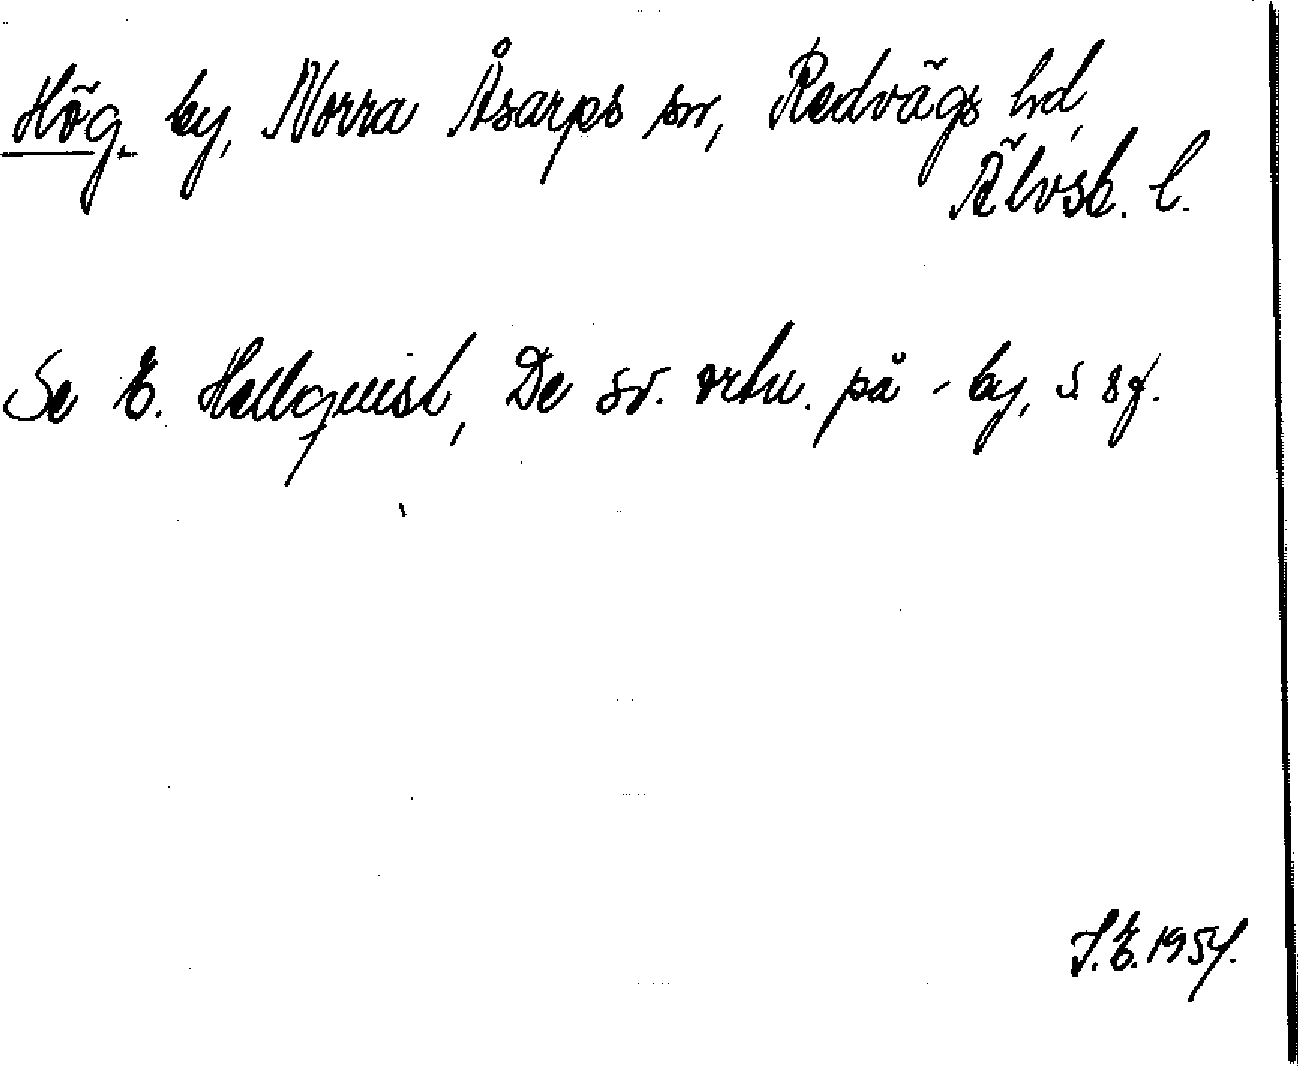 Hög. by, Norra Åsarps sn, Redvägs hd,
Älvsb. l.
Se E. Hellquist, De sv. ortn. på -by, s. 87.
J.E. 1954.